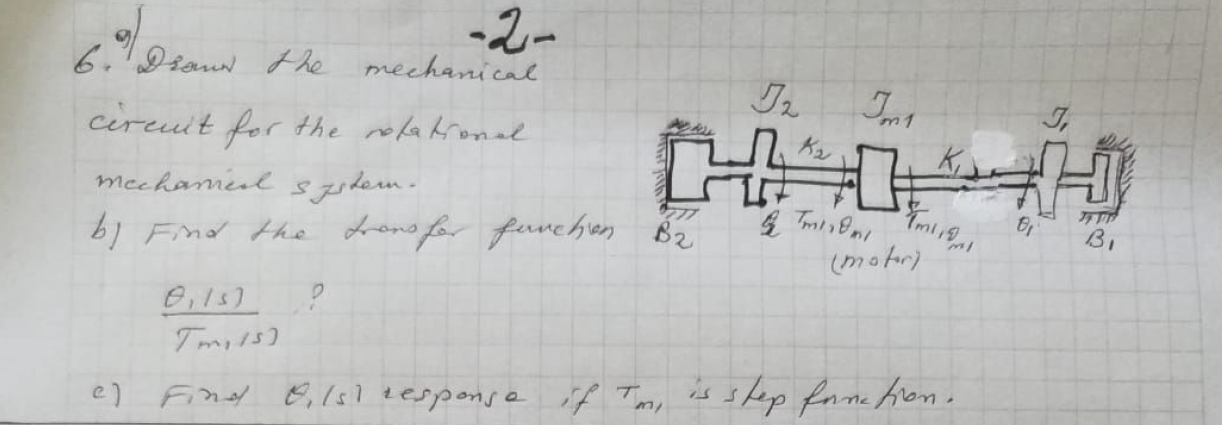 -2-
6. a) Drawn the mechanical
circuit for the rotational
mechanical system.
b) Find the transfer function
θ₁(s) ?
Tm₁(s)
c) Find θ₁(s) response if Tm₁ is step function.
J₂ Jm1 J₁
K₂ K₁
B₂ θ₂ Tm1, θm1 Tm1, θm1 θ₁ B₁
(motor)